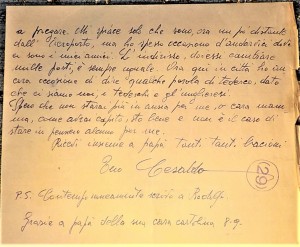 a pregare. Mi spiace solo che sono, ora un po' distante
dall'aeroporto, ma ho spesso occasione d'andarci dato
ci sono i miei amici. L'indirizzo, dovessi cambiare
mille posti, è sempre uguale. Ora qui in città ho in
cara occasione di dire qualche parola di tedesco, dato
che ci siamo noi, i tedeschi e gli ungheresi.
Spero che non starai più in ansia per me, o cara mam
ma, come avrai capito, sto bene e non è il caso di
stare in pensiero alcuno per me.
Ricevi insieme a papà tanti tanti bacioni
Tuo Cesaldo
29
P.S. Contemporaneamente scrivo a Rodolfo
Grazie a papà della sua cara cartolina 8-9.